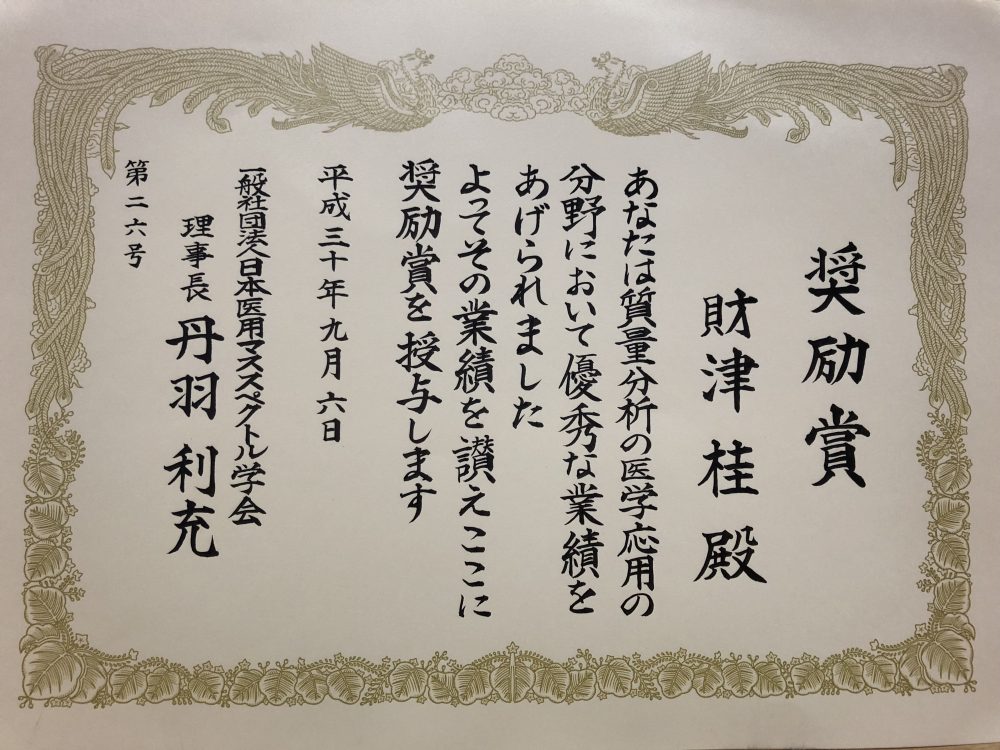 奨励賞
財津桂殿
あなたは質量分析の医学応用の
分野において優秀な業績を
あげられました
よってその業績を讃えここに
奨励賞を授与します
平成三十年九月六日
一般社団法人日本医用マススペクトル学会
理事長 丹羽利充
第二六号